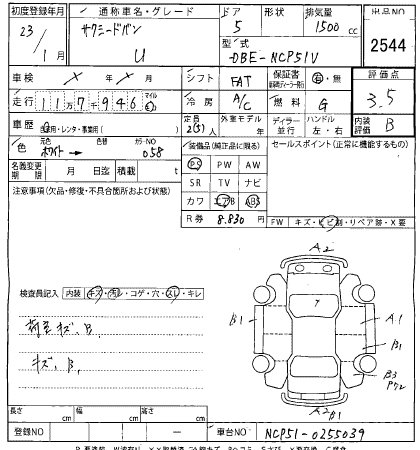 初度登録年月 通称車名・グレード ドア 形状 排気量 出品NO
23/1月 サクシードバン U 5 1500cc 2544
型式 DBE-NCP51V
車検 ×月×日 シフト FAT 保証書 有・無 評価点
走行 11万7千946 マイル 冷房 A/C 燃料 G 3.5
車歴 自家用・レンタ・事業用( ) 定員 2(5)人 外装モデル 年 ディーラー 並行 ハンドル 左・右 内装評価 B
色 元色 ホワイト → 色替 カラーNO 058 装備品(純正品に限る) セールスポイント(正常に機能するもの)
PS PW AW
名義変更期限 月 日迄 積載 t SR TV ナビ
注意事項(欠品・修復・不具合箇所および状態) カワ エアB ABS
R券 8.830円 FW キズ・ヒビ割・リペア跡・X要
A2
検査員記入 内装 キズ・汚レ・コゲ・穴・スレ・キレ
B1 A1
荷室キズ、B、 B1
キズ、B、 B3
P72
長さ cm 幅 cm 高さ cm A2 B1
登録NO ー 車台NO NCP51-0255039